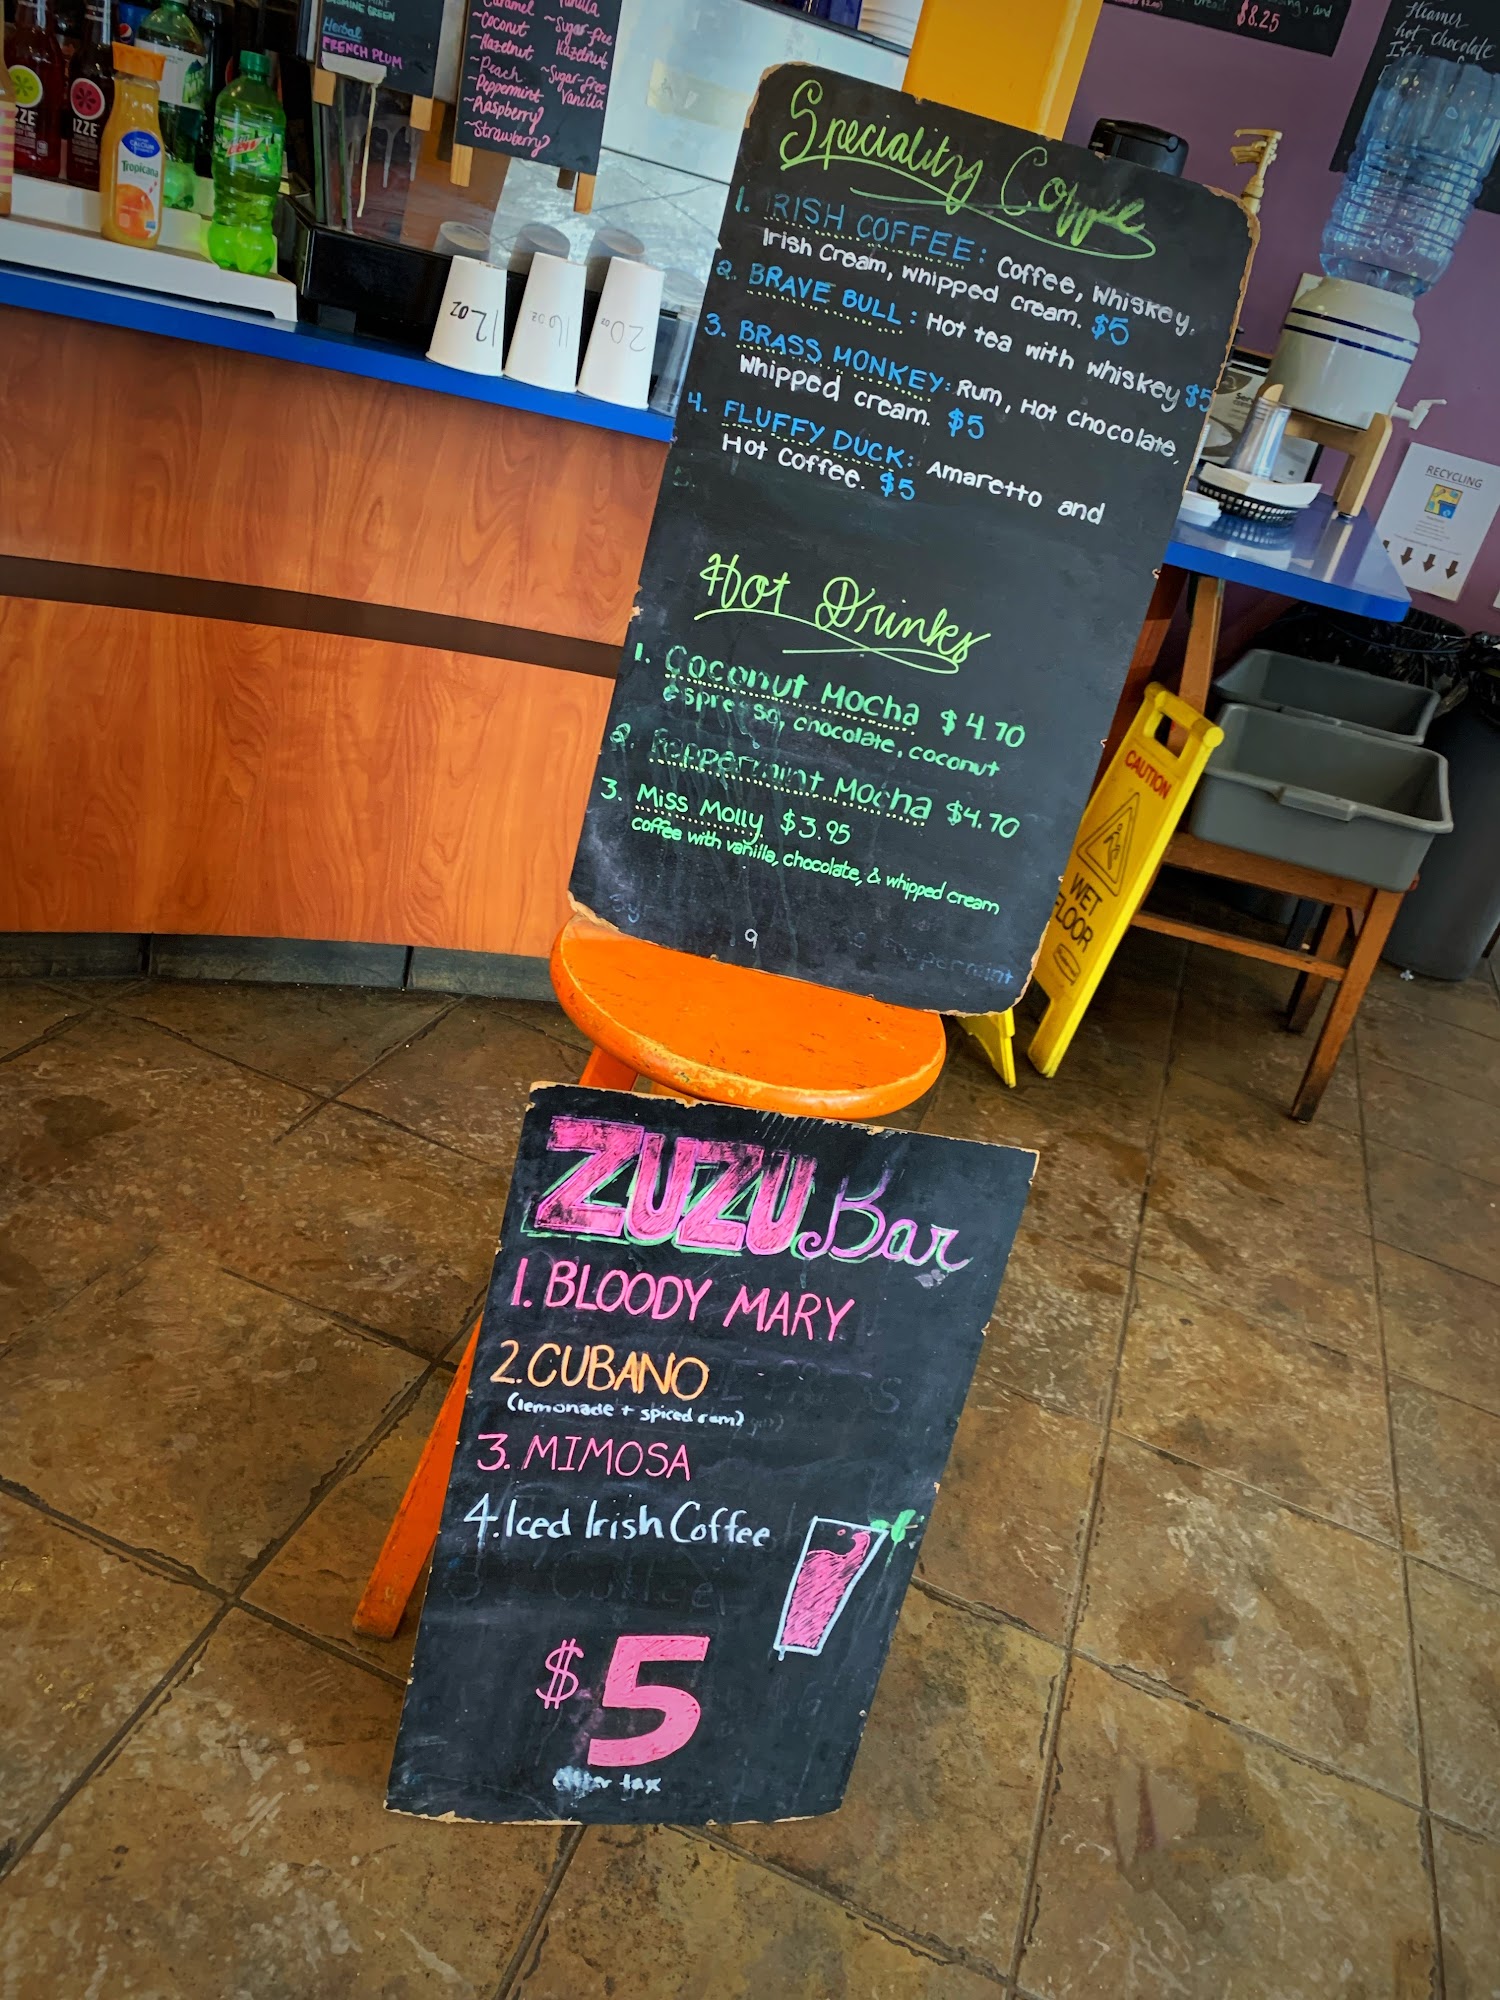 JASMINE GREEN
Herbal
FRENCH PLUM
Caramel
~Coconut
~Hazelnut
~Peach
~Peppermint
~Raspberry
~Strawberry
Vanilla
~Sugar-free
Hazelnut
~Sugar-free
Vanilla
$8.25
Steamer
hot chocolate
IZZE
Tropicana
12oz
16oz
20oz
Speciality Coffee
1. IRISH COFFEE: Coffee, Whiskey,
Irish Cream, whipped cream. $5
2. BRAVE BULL: Hot tea with whiskey $5
3. BRASS MONKEY: Rum, Hot Chocolate,
Whipped cream. $5
4. FLUFFY DUCK: Amaretto and
Hot Coffee. $5
Hot Drinks
1. Coconut Mocha $4.70
espresso, chocolate, coconut
2. Peppermint Mocha $4.70
3. Miss Molly $3.95
coffee with vanilla, chocolate, & whipped cream
9
RECYCLING
CAUTION
WET
FLOOR
ZUZU Bar
1. BLOODY MARY
2. CUBANO
(lemonade + spiced rum)
3. MIMOSA
4. Iced Irish Coffee
$5
after tax